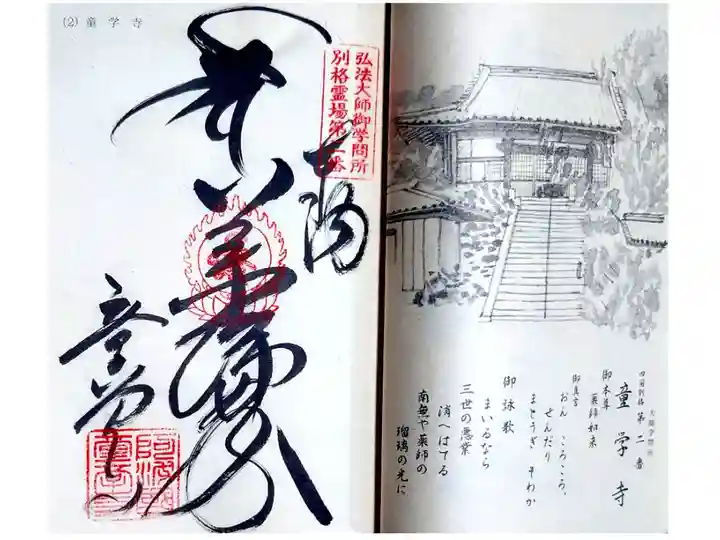 (2) 童学寺
弘法大師御学問所
別格霊場第二番
奉拝
童学寺
大師学問所
四国別格 第二番
童学寺
御本尊
薬師如来
御真言
おん ころころ、
せんだり
まとうぎ そわか
御詠歌
まいるなら
三世の悪業
消へはてる
南無や薬師の
瑠璃の光に